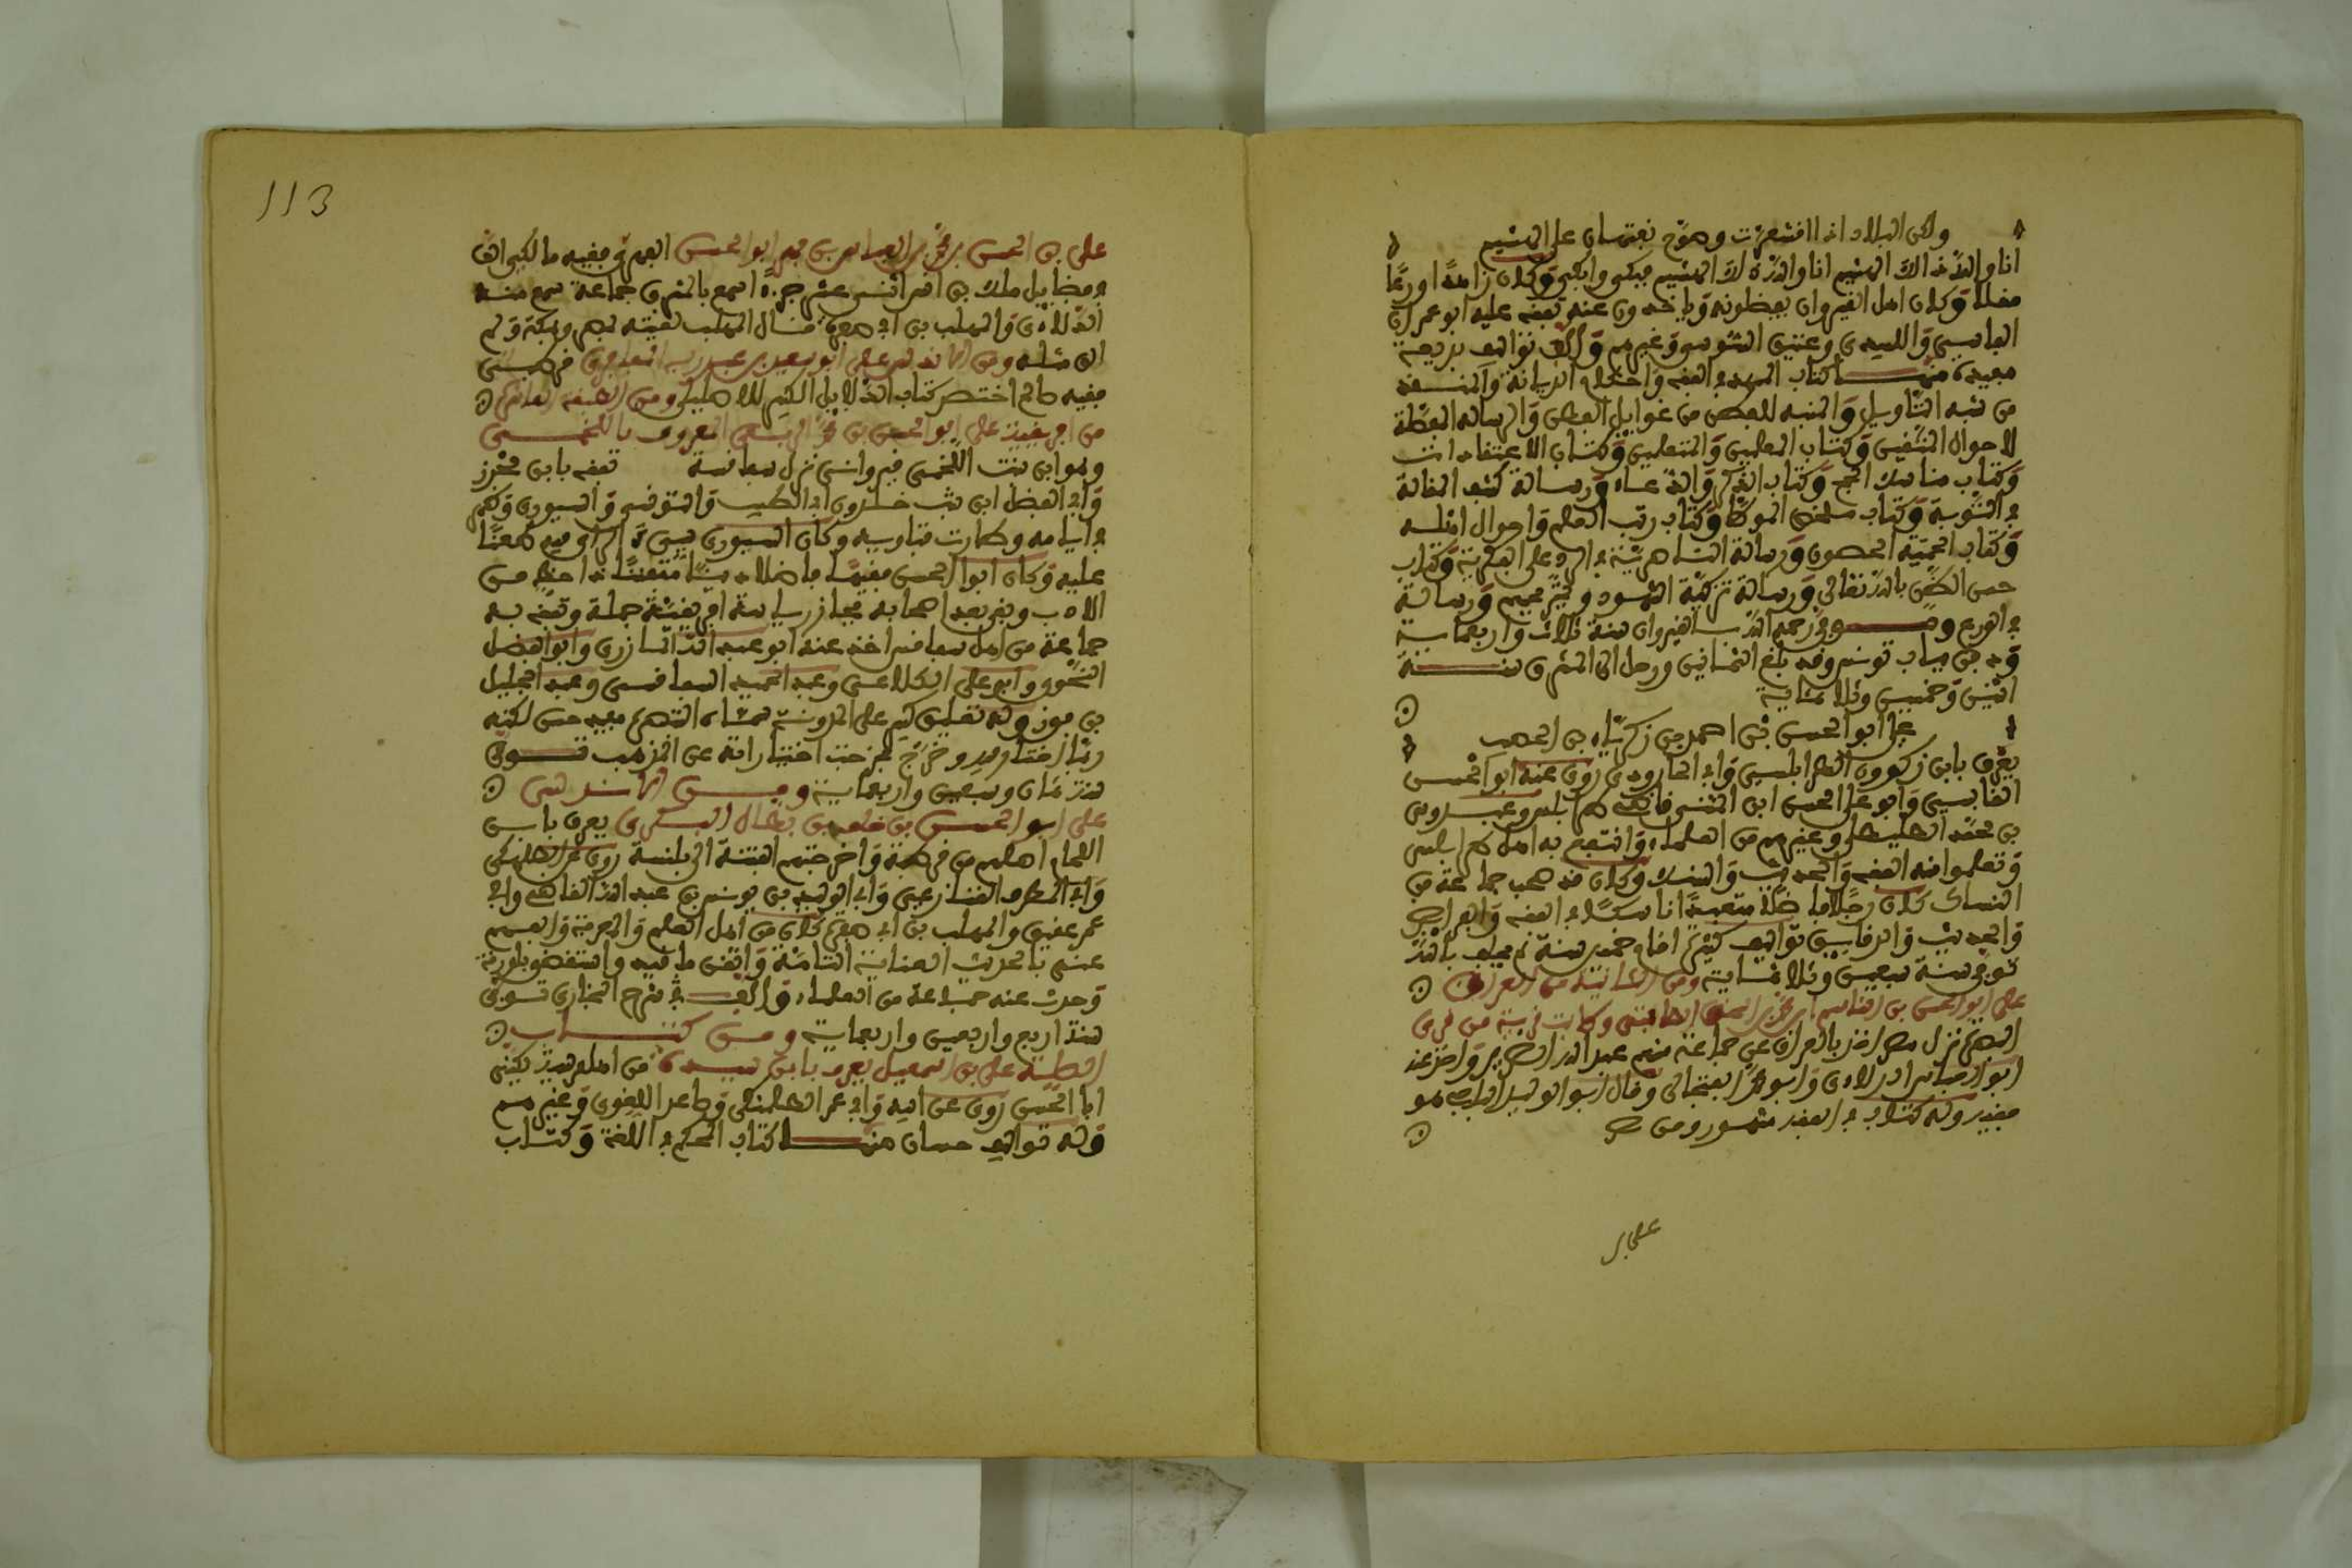 ولكن البلاد اذا اقشعرت وصوّح نبتها رعي الهشيم
انا والله ذالك الهشيم انا والله ذلك الهشيم فبكى وابكى وكان زاهدا ورعا
وكان اهل القيروان يعظمونه وياخذون عنه تفقه عليه ابو عمران
الفاسي واللبيدي وعتيق السوسي وغيرهم وألف تواليف بديعة
مفيدة منها كتاب الممهد في الفقه واحكام الديانة والمنقذ
من شبه التأويل والمنبه للفطن من غوايل الفتن والرسالة المفصلة
لاحوال المتقين وكتاب المعلمين والمتعلمين وكتاب الاعتقادات
وكتاب مناسك الحج وكتاب الذكر والدعاء ورسالة كشف المقالة
في التوبة وكتاب ملخص الموطأ وكتاب رتب العلم واحوال اهله
وكتاب احمية الحصون ورسالة الناصرية في الرد على البكرية وكتاب
حسن الظن بالله تعالى ورسالة تزكية الشهود وتجريحهم ورسالة
في الورع وتوفي رحمه الله بالقيروان سنة ثلاث واربعماية
ودفن بباب تونس وقد بلغ الثمانين ورحل الى المشرق سنة
اثنين وخمسين وثلاثماية
علي ابو الحسن بن احمد بن زكرياء بن الخصيب
يعرف بابن زكرون الطرابلسي وابي الجارود روى عنه ابو الحسن
القابسي وابو علي الحسن ابن المثنى قاضي طرابلس وعبدوس
بن محمد الطليطلي وغيرهم من العلماء وانتفع به اهل طرابلس
وتعلموا منه الفقه والحديث والنسك وكان قد صحب جماعة من
النساك كان رجلا فاضلا متعبدا ناسكا في الفقه والفرايض
والحديث والرقايق تواليف كثيرة اقام خمسين سنة لم يحلف بالله
توفي سنة سبعين وثلاثماية ومن الثانية من العراق
علي ابو الحسن بن القاسم بن محمد
البصرة نزل مصر اخذ بالعراق عن جماعة منهم عبد الله الضرير واخذ عنه
ابو العباس الدلاءي وابو محمد الشنتجالي وقال ابو الوليد الباجي هو
فقيه وله كتاب في الفقه مشهور ومن
علي بن
113
علي بن الحسن بن محمد بن العباس بن فهر ابو الحسن المصري فقيه مالكي الف
في فضايل ملك بن انس اثني عشر جزءا سمع بالمشرق جماعة سمع منه
الدلاءي والمهلب بن ابي صفرة قال المهلب لقيته بمصر ومكة ولم
الق مثله ومن الاندلس علي ابو سعيد بن عبد ربه قرطبي
فقيه عالم اختصر كتاب الدلايل الكبير للاصيلي ومن الطبقة العاشرة
من افريقية علي ابو الحسن بن محمد الربعي المعروف باللخمي
وهو ابن بنت اللخمي قيرواني نزل سفاقس تفقه بابن محرز
وابي الفضل ابن بنت خلدون ابي الطيب والتونسي والسيوري وظهر
في ايامه وطارت فتاويه وكان السيوري يسيء الراي فيه طعنا
عليه وكان ابو الحسن فقيها فاضلا دينا متفننا ذا حظ من
الادب وبقي بعد اصحابه فحاز رياسة افريقية جملة وتفقه به
جماعة من اهل سفاقس اخذ عنه ابو عبد الله المازري وابو الفضل
النحوي وابو علي الكلاعي وعبد الحميد السفاقسي وعبد الجليل
بن مفوز وله تعليق كبير على المدونة سماه التبصرة مفيد حسن لكنه
ربما اختار فيه وخرّج فخرجت اختياراته عن المذهب توفي
سنة ثمان وسبعين واربعماية ومن الاندلس
علي ابو الحسن بن خلف بن بطال البكري يعرف بابن
اللجام اصلهم من قرطبة واخرجتهم الفتنة الى بلنسية روى عن الطلمنكي
وابي المطرف القنازعي وابي الوليد بن يونس بن عبد الله القاضي وابي
عمر عفيف والمهلب بن ابي صفرة كان من اهل العلم والمعرفة والفهم
عني بالحديث العناية التامة واتقن ما قيد واستقضي بلورقة
وحدث عنه جماعة من العلماء وألف في شرح البخاري توفي
سنة اربع واربعين واربعماية ومن كتاب
الصلة علي بن اسمعيل يعرف بابن سيده من اهل مرسية يكنى
ابا الحسن روى عن ابيه وابي عمر الطلمنكي وصاعد اللغوي وغيرهم
وله تواليف حسان منها كتاب المحكم في اللغة وكتاب